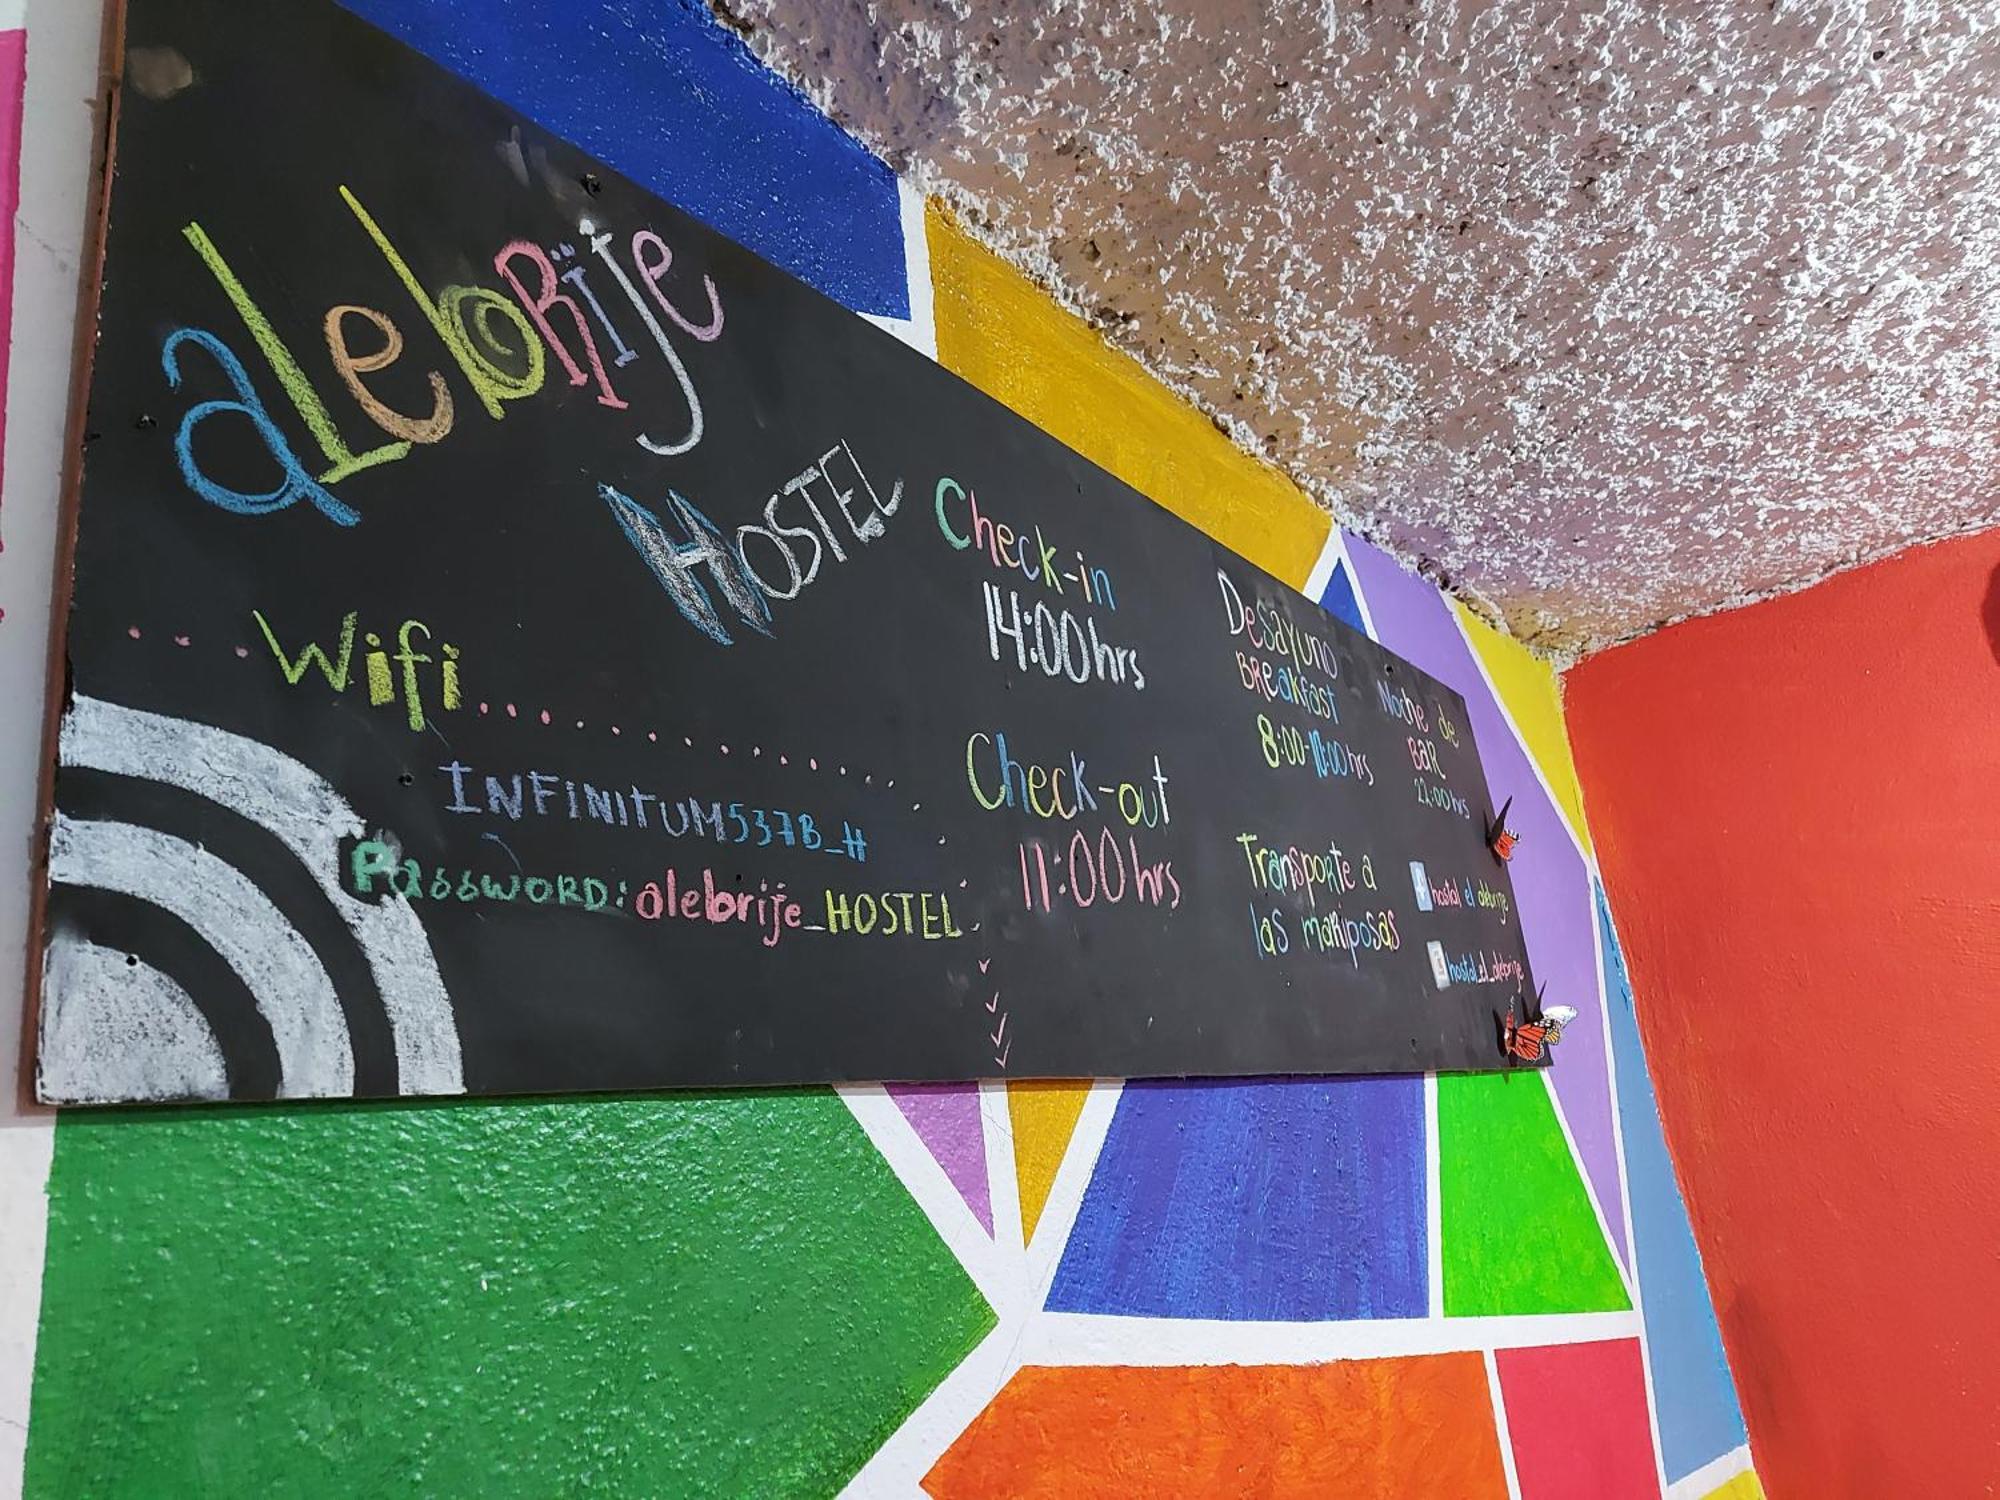 alebRije
HOSTEL
Wifi
INFINITUM537B_H
PassWORD: alebrije_HOSTEL
Check-in
14:00hrs
Check-out
11:00hrs
Desayuno
BReakfast
8:00-10:00hrs
Transporte a
las maRiposas
Noche de
BaR
22:00hrs
f hostal el alebrije
hostal_el_alebrije